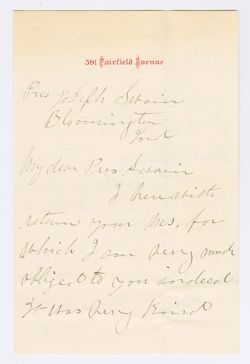 391 Fairfield Avenue
Pres Joseph Swain
Bloomington
Ind
My dear Pres. Swain
I herewith
return your Ms. for
which I am very much
obliged to you indeed
It was very kind